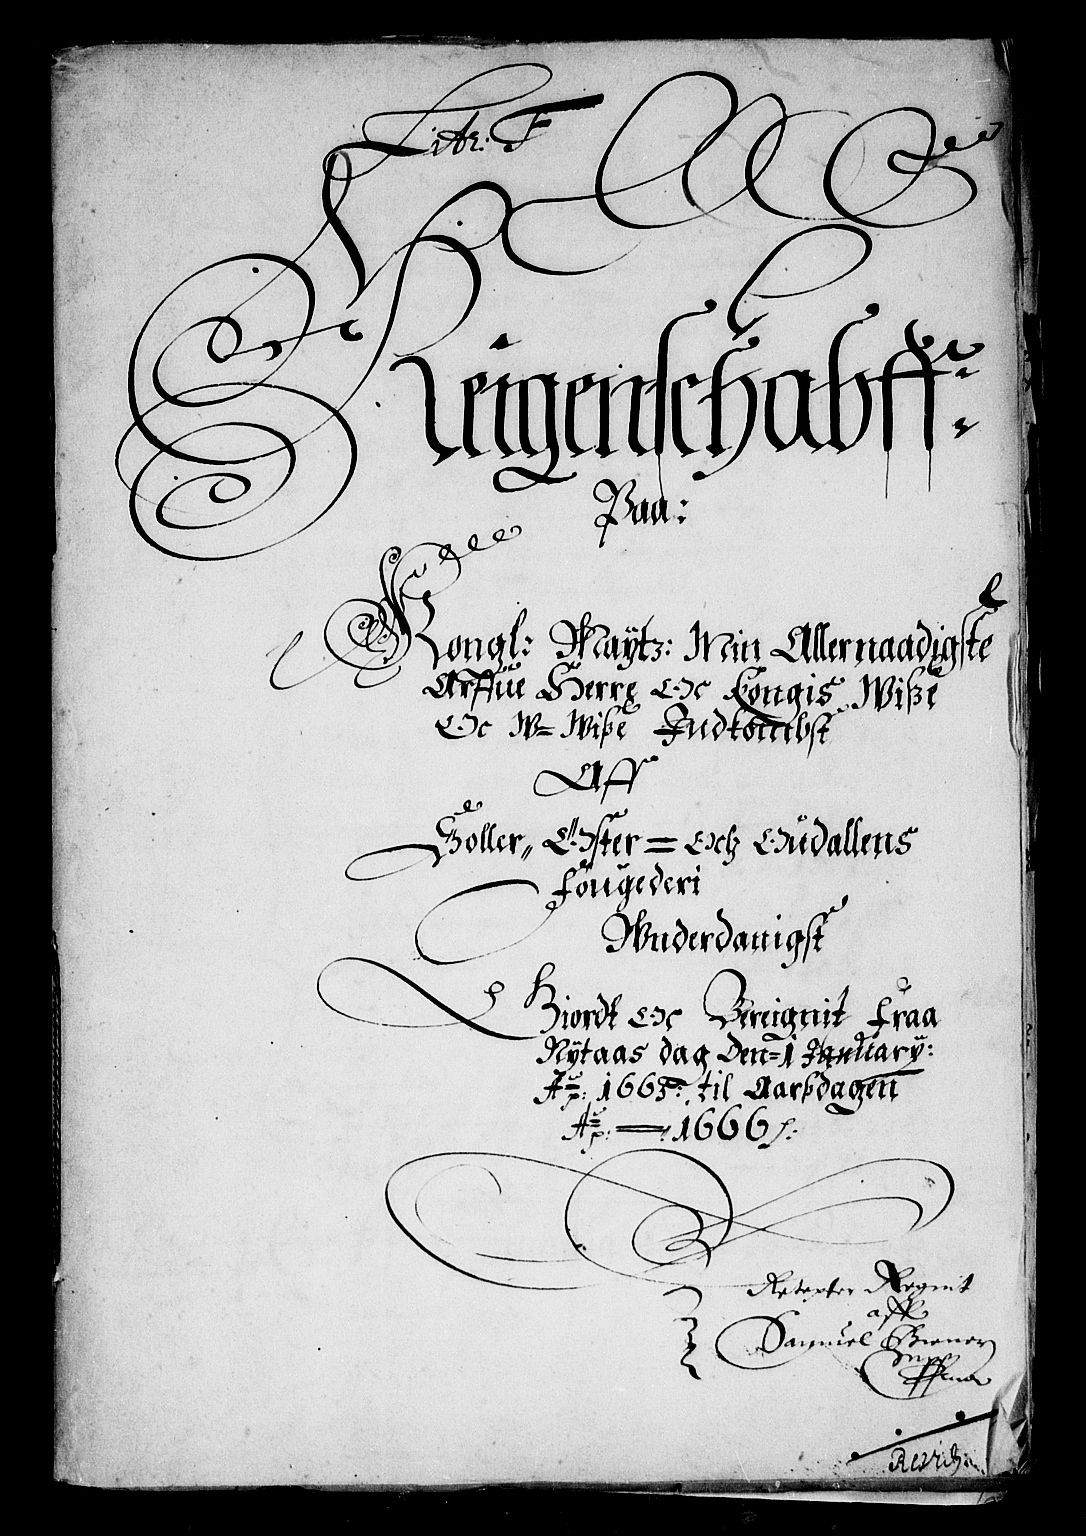 Litr: F
Reigenschabff:
Paa:
Kongl: Maÿtz: Min Allernaadigste
Arffue Herre Oc Kongis Wiße
Oc W= Wiße Indkombst
Aff
Soller, Øster= och Oudallens
fougederi
Wnderdanigst
Giordt Oc Bereignit fraa
Nÿtaas dag Den=1 January:
Aō: 1665: til Aarßdagen
Aō: 1666
Regnit
aff
Samuel